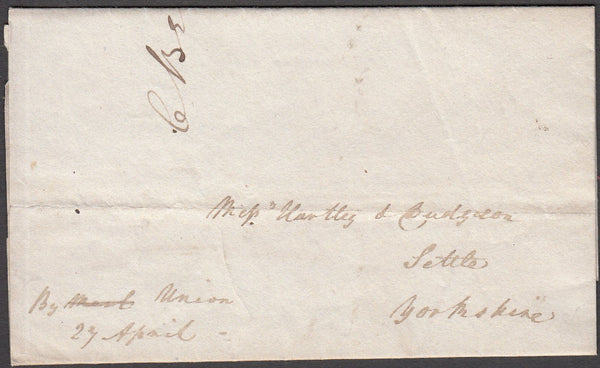 Messrs Hartley & Dudgeon
Settle
Yorkshire
By Mail Union
27 April